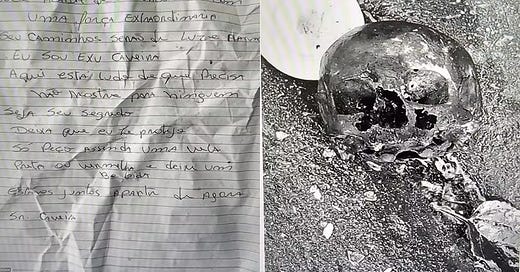 uma força Extraordinaria
Seu caminhos serão de Luz e
Eu sou Exu caveira
Aqui está tudo de que Precisa
Não mostre para ninguem
Seja seu segredo
Deixa que eu te proteja
Só Peço acenda uma vela
Preta ou vermelha e deixe um
Be bida
Estamos juntos aparti de agora
Sr. caveira